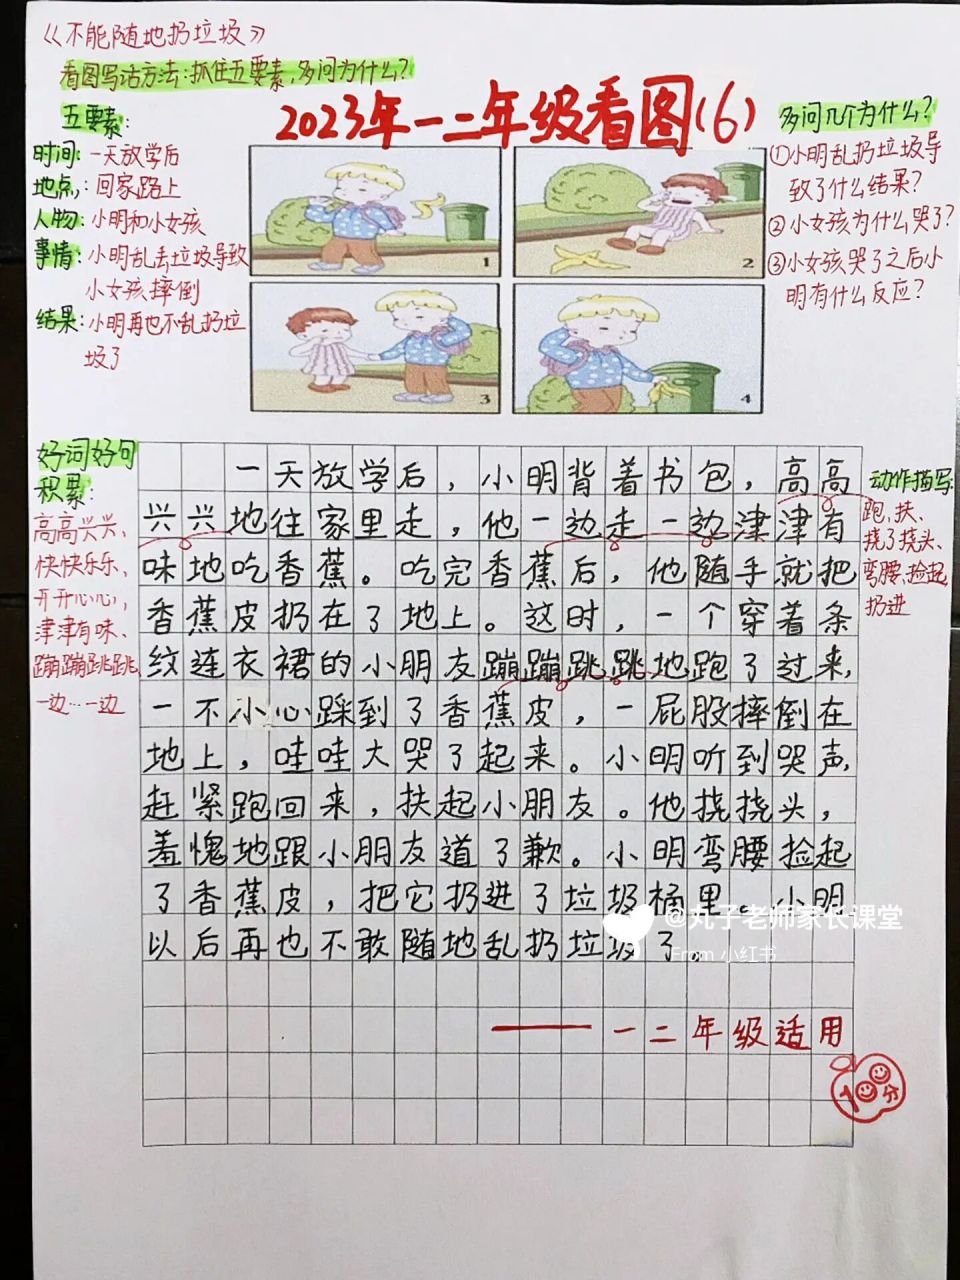 《不能随地扔垃圾》
看图写话方法:抓住五要素,多问为什么?
2023年一二年级看图(6)
五要素:
时间:一天放学后
地点:回家路上
人物:小明和小女孩
事情:小明乱丢垃圾导致
小女孩摔倒
结果:小明再也不乱扔垃
圾了
1
2
3
4
多问几个为什么?
①小明乱扔垃圾导
致了什么结果?
②小女孩为什么哭了?
③小女孩哭了之后小
明有什么反应?
好词好句
积累:
高高兴兴、
快快乐乐、
开开心心,
津津有味、
蹦蹦跳跳,
一边…一边
一天放学后,小明背着书包,高高
兴兴地往家里走,他一边走一边津津有
味地吃香蕉。吃完香蕉后,他随手就把
香蕉皮扔在了地上。这时,一个穿着条
纹连衣裙的小朋友蹦蹦跳跳地跑了过来,
一不小心踩到了香蕉皮,一屁股摔倒在
地上,哇哇大哭了起来。小明听到哭声,
赶紧跑回来,扶起小朋友。他挠挠头,
羞愧地跟小朋友道了歉。小明弯腰捡起
了香蕉皮,把它扔进了垃圾桶里。小明
以后再也不敢随地乱扔垃圾了。
动作描写:
跑、扶、
挠了挠头、
弯腰、捡起
扔进
@丸子老师家长课堂
From 小红书
——一二年级适用
100分